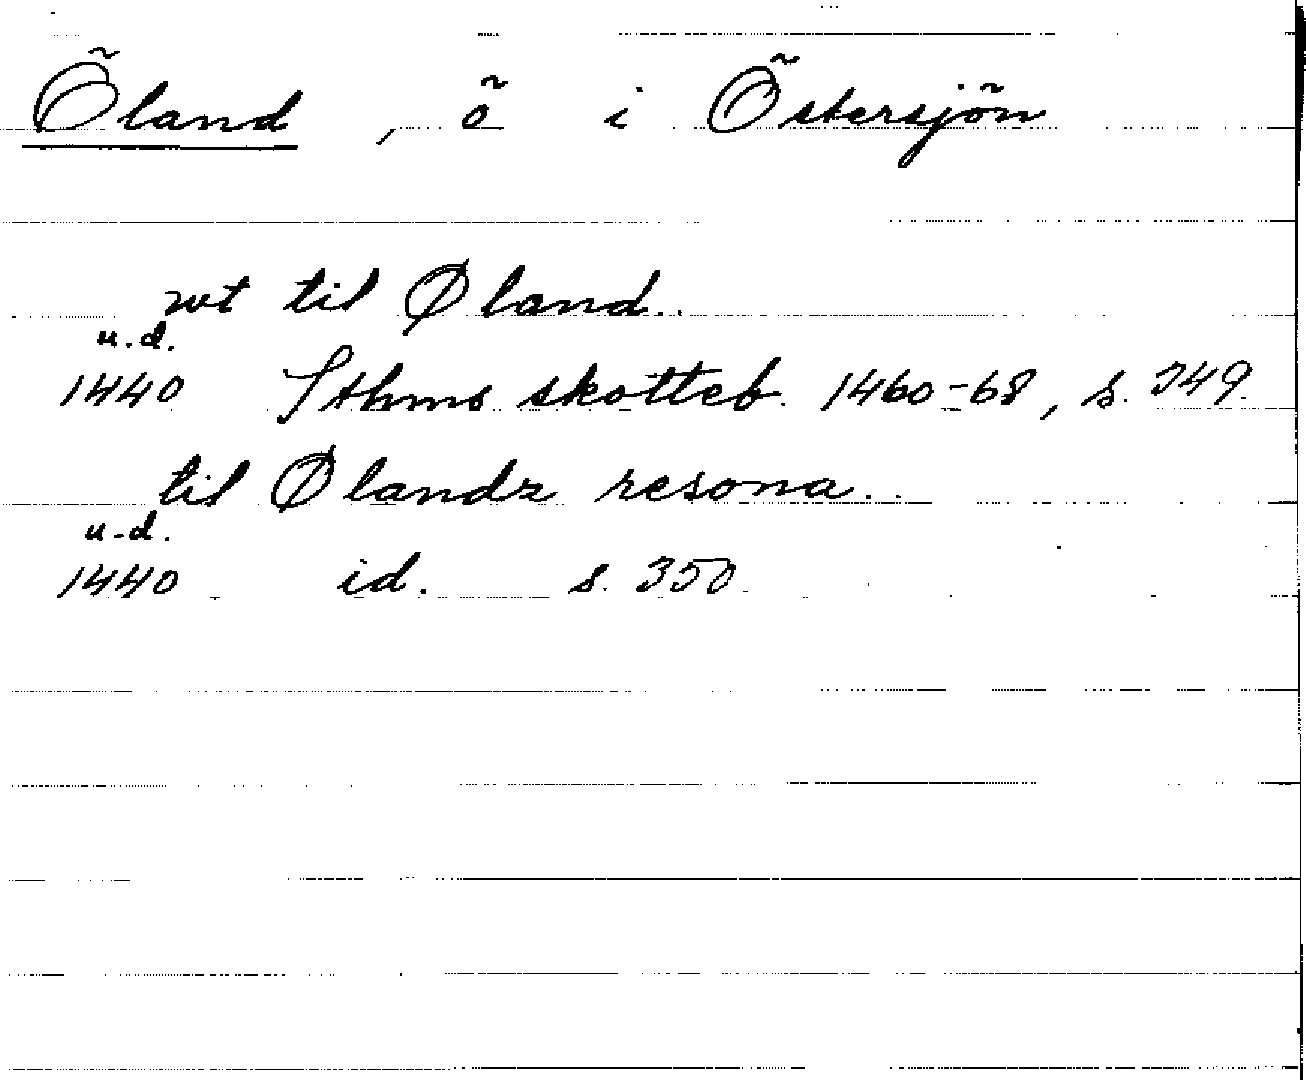 Öland , ö i Östersjön
wt til Øland..
u.d.
1440 Sthms skotteb. 1460-68, s. 349.
til Ølandz resona..
u.d.
1440 id. s. 350.